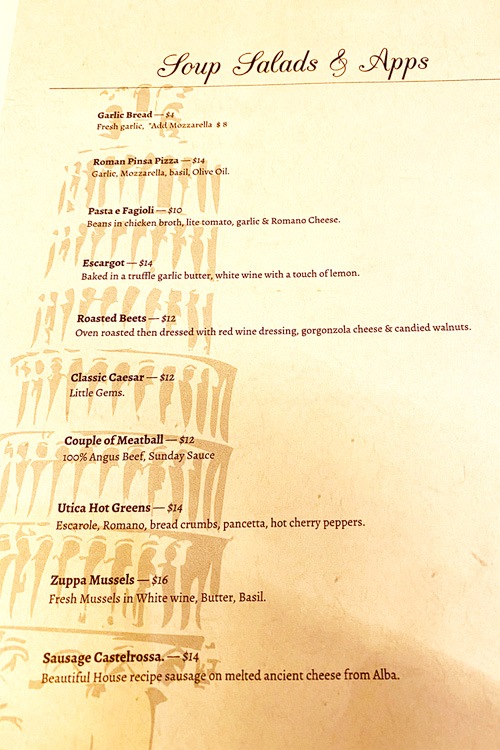 Soup Salads & Apps
Garlic Bread — $4
Fresh garlic, *Add Mozzarella $ 8
Roman Pinsa Pizza — $14
Garlic, Mozzarella, basil, Olive Oil.
Pasta e Fagioli — $10
Beans in chicken broth, lite tomato, garlic & Romano Cheese.
Escargot — $14
Baked in a truffle garlic butter, white wine with a touch of lemon.
Roasted Beets — $12
Oven roasted then dressed with red wine dressing, gorgonzola cheese & candied walnuts.
Classic Caesar — $12
Little Gems.
Couple of Meatball — $12
100% Angus Beef, Sunday Sauce
Utica Hot Greens — $14
Escarole, Romano, bread crumbs, pancetta, hot cherry peppers.
Zuppa Mussels — $16
Fresh Mussels in White wine, Butter, Basil.
Sausage Castelrossa. — $14
Beautiful House recipe sausage on melted ancient cheese from Alba.